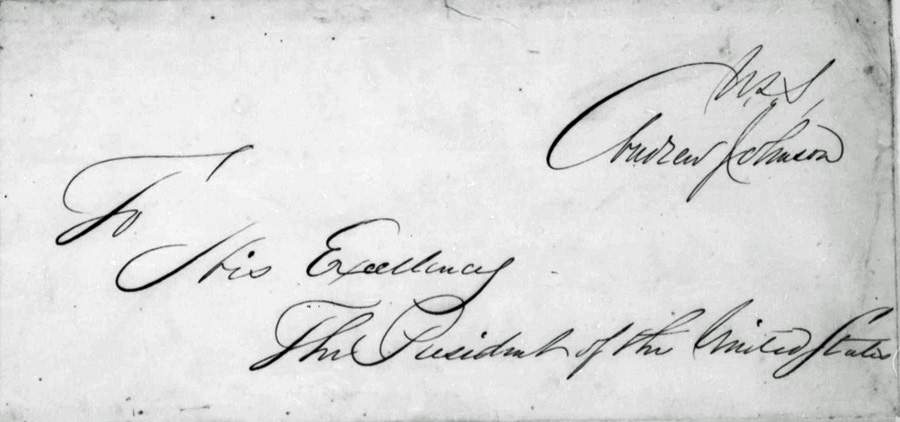 U.S.
Andrew Johnson
To
His Excellency
The President of the United States